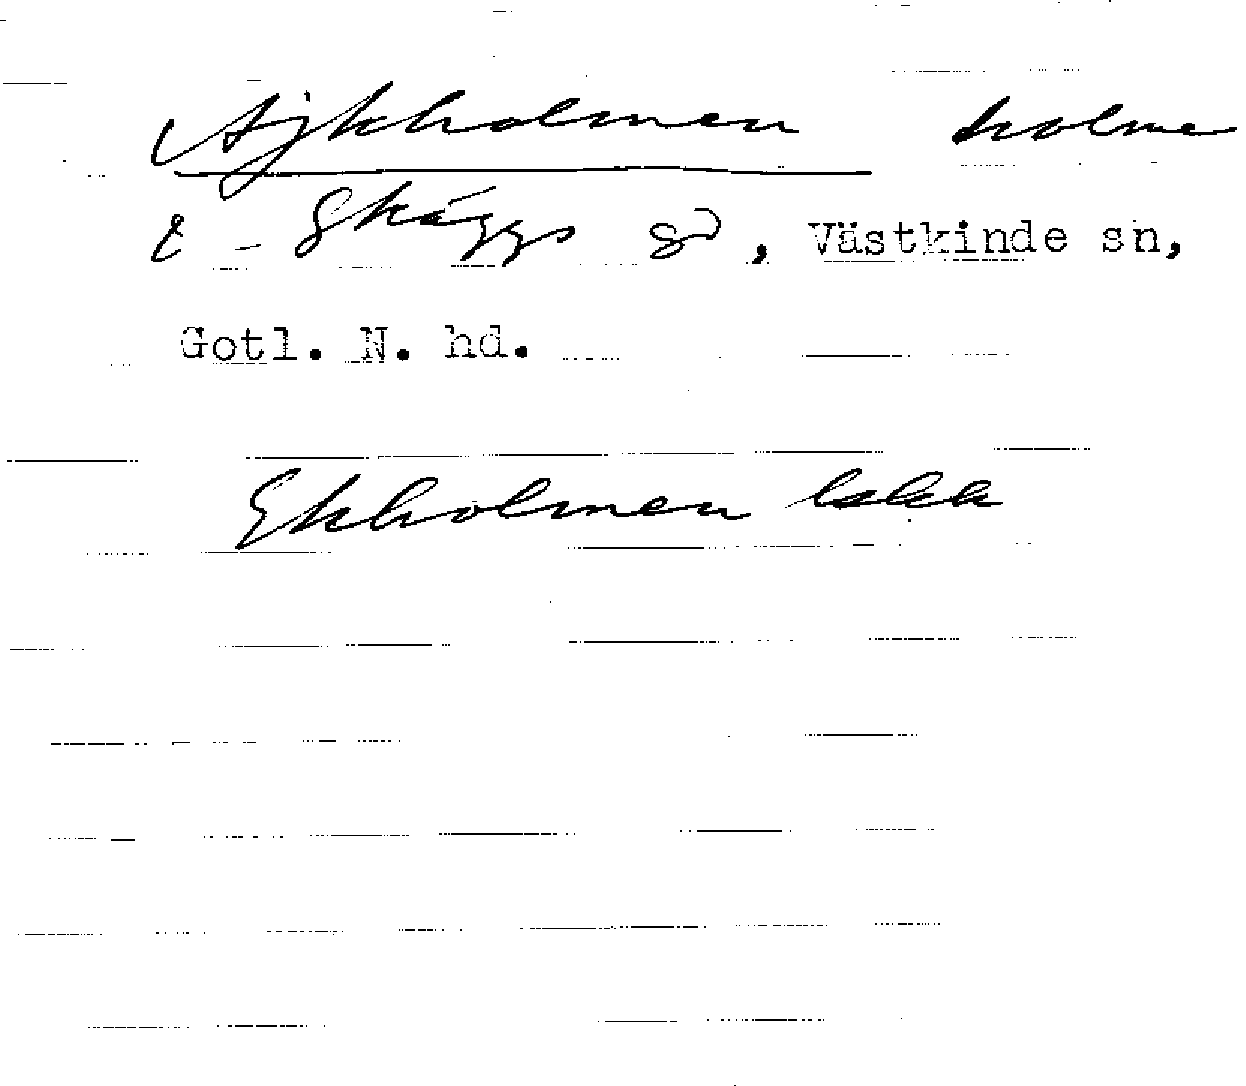 Ajkholmen holme
t - Skäggs gd, Västkinde sn,
Gotl. N. hd.
Ekholmen lskk